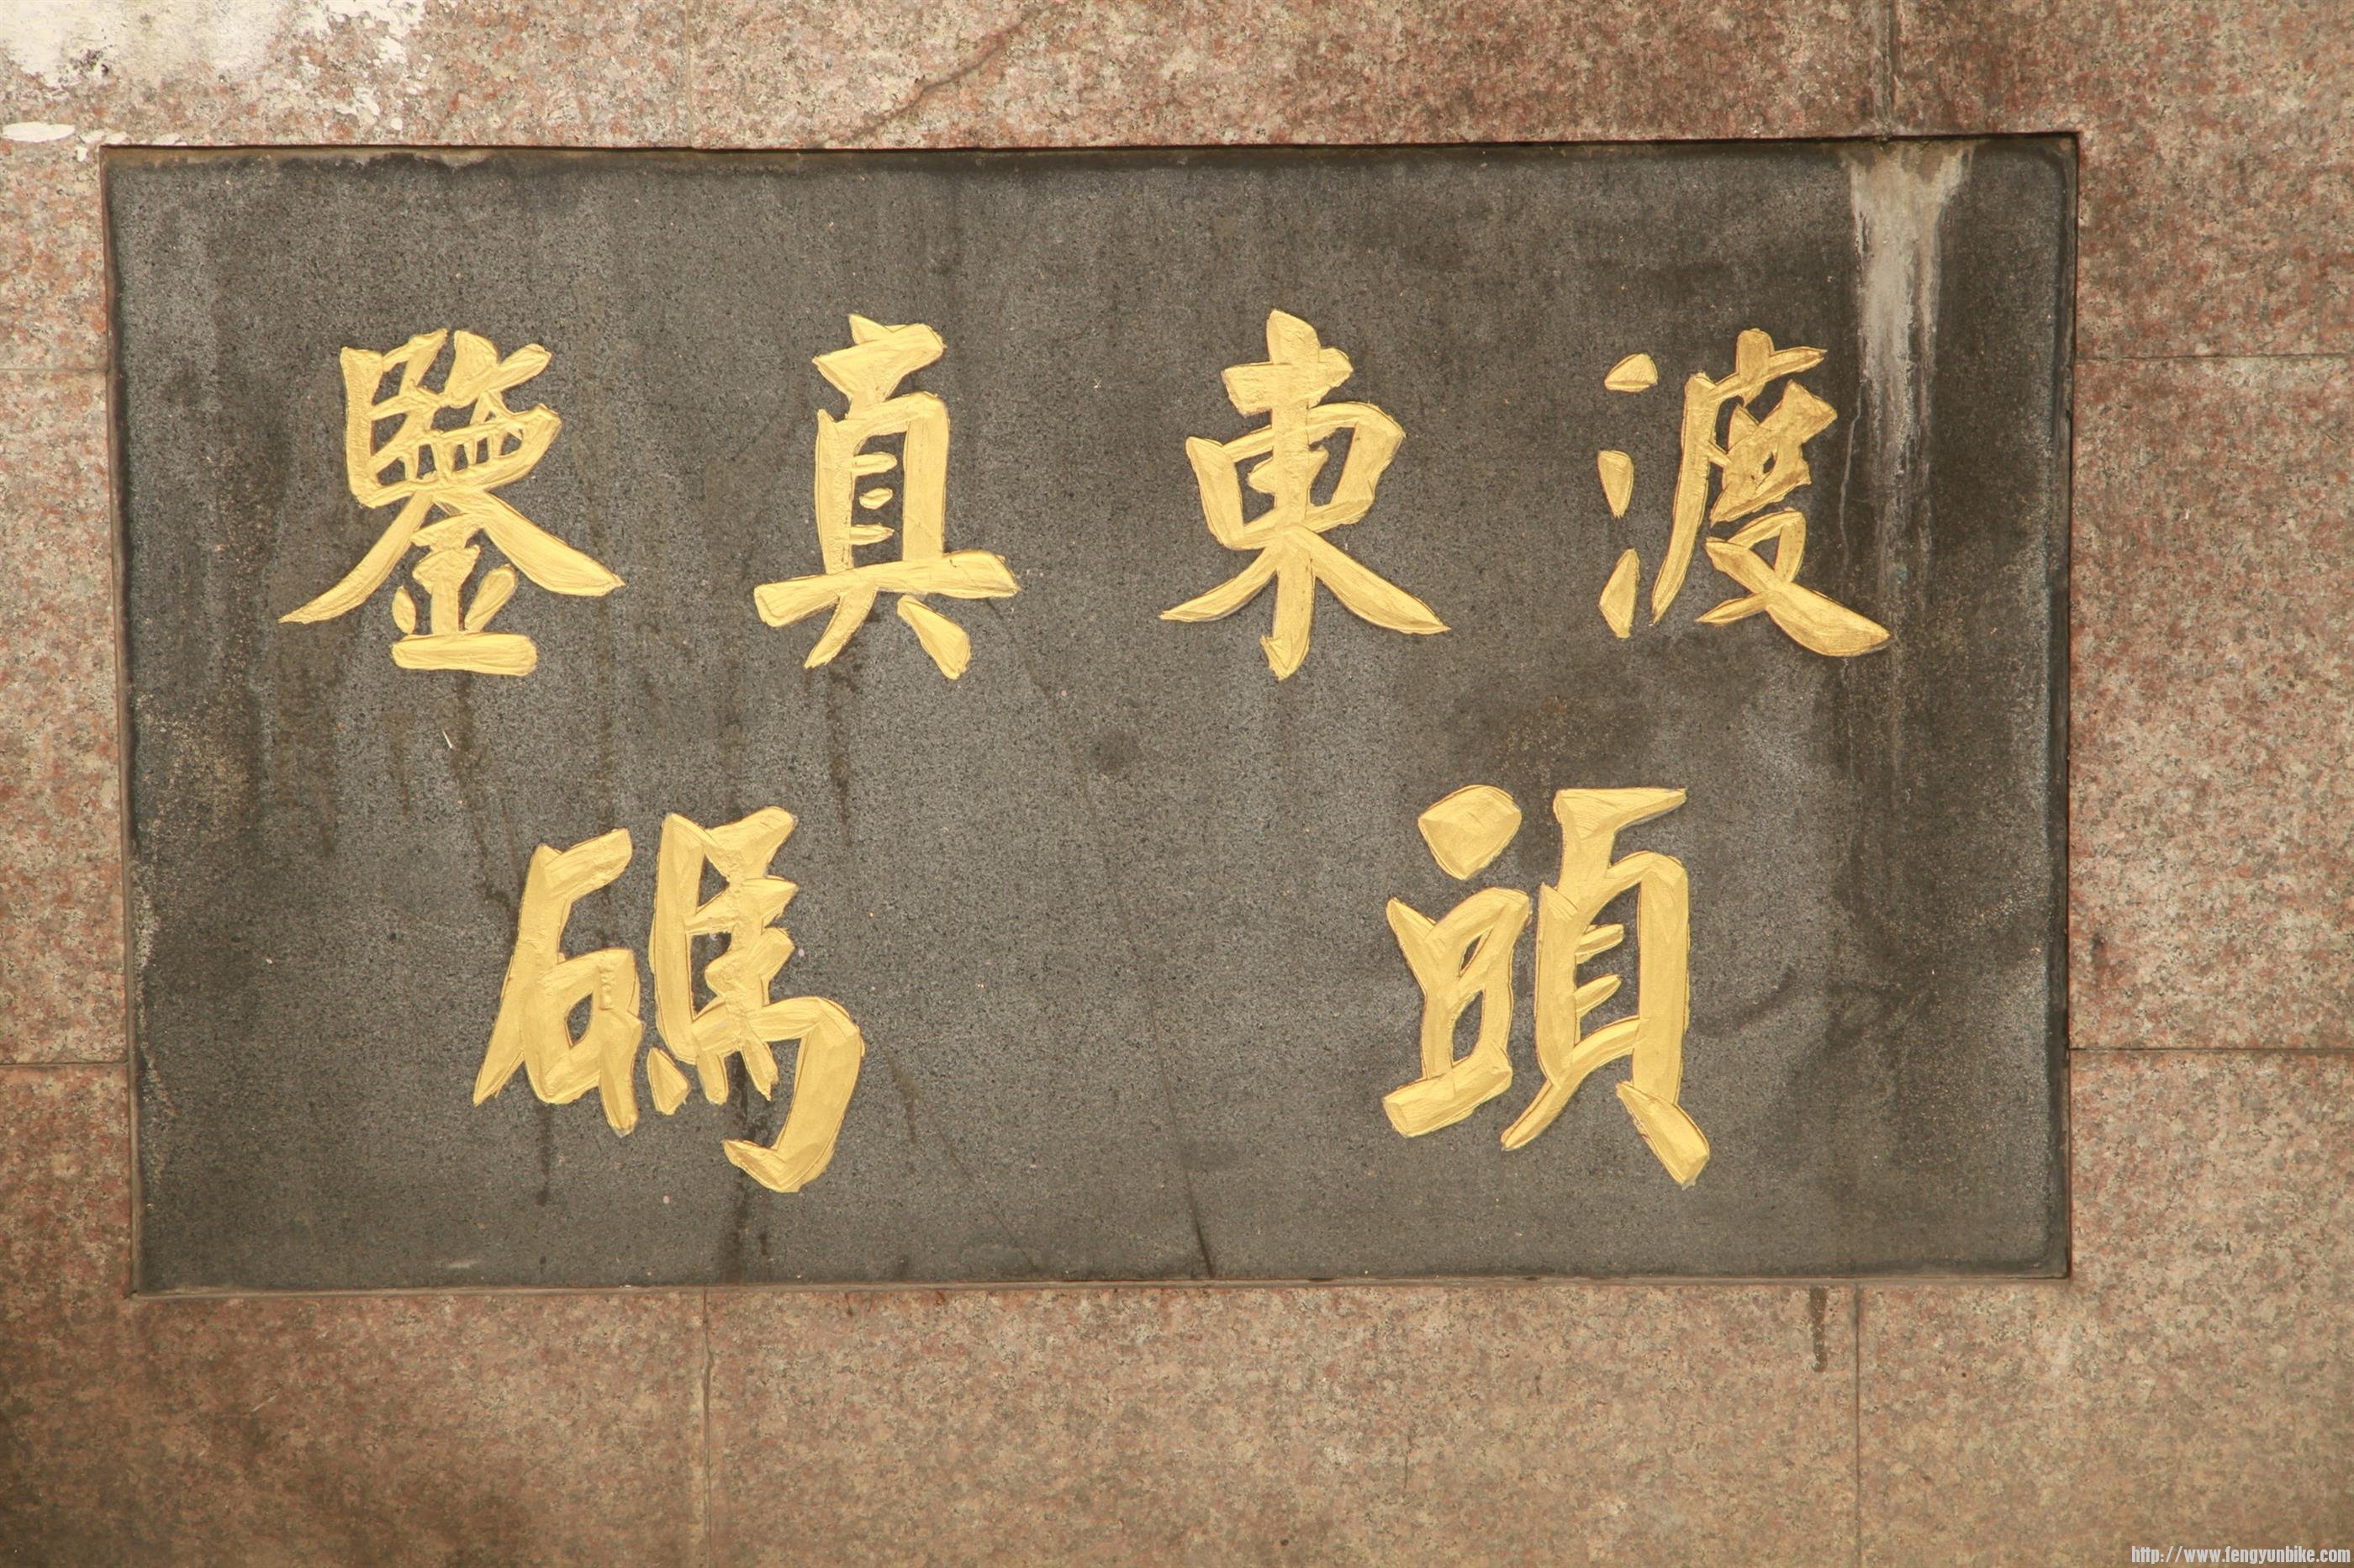 鑒真東渡
碼頭
http://www.fengyunbike.com